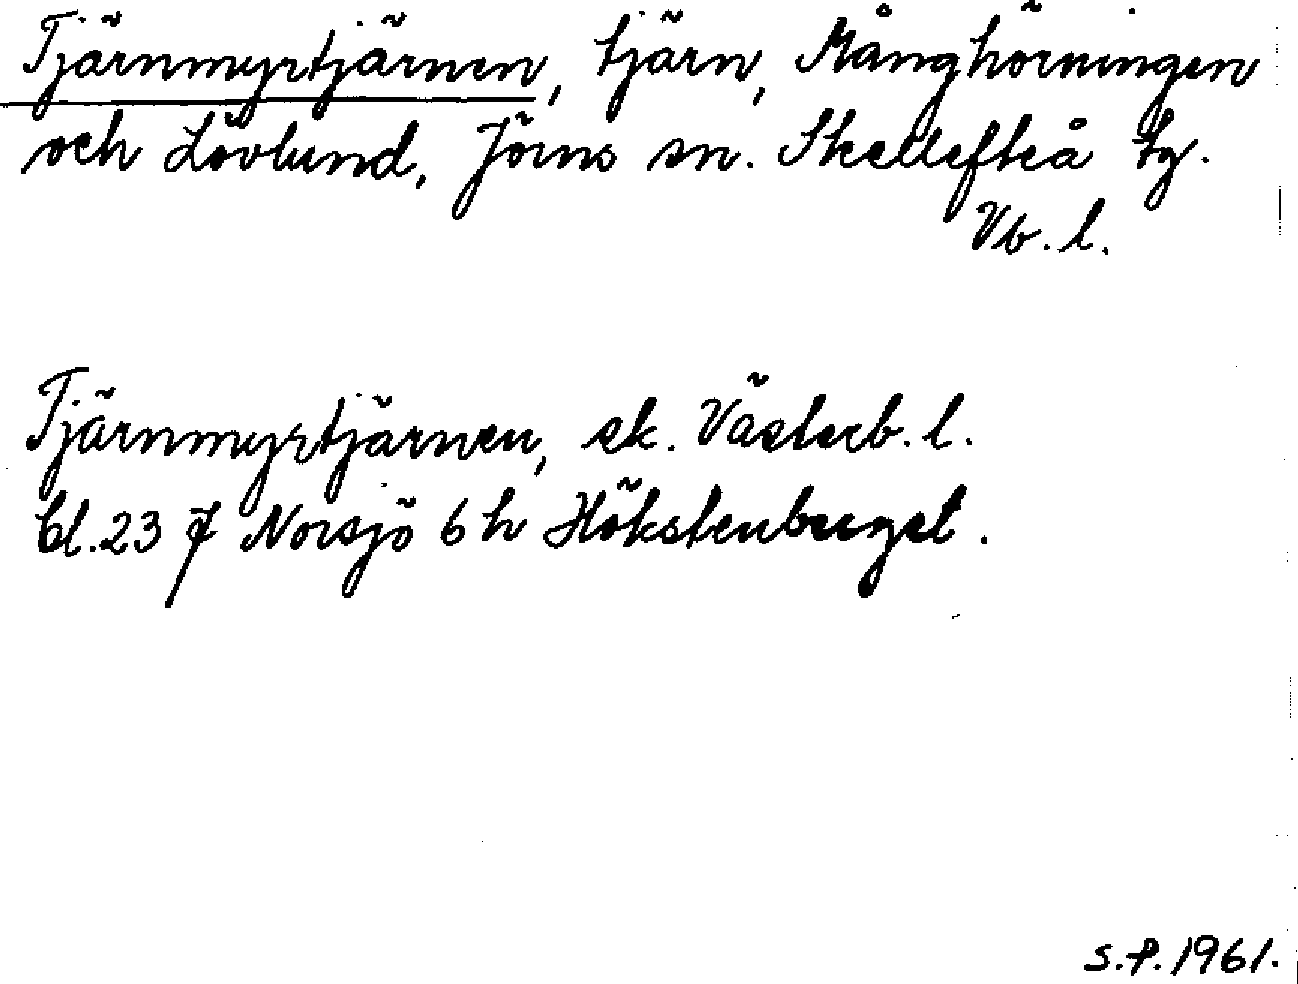 Tjärnmyrtjärnen, tjärn, Månghörningen
och Lövlund, Jörns sn. Skellefteå tg.
Vb. l.
Tjärnmyrtjärnen, ek. Västerb. l.
bl. 23 J Norsjö 6 h Hökstenberget.
S.P. 1961.